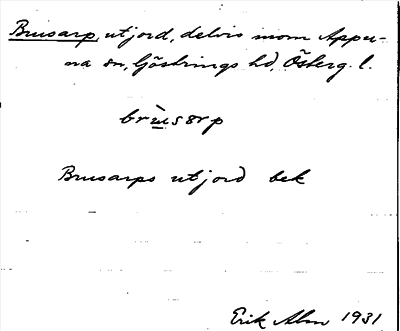 Brusarp, utjord, delvis inom Appu-
na sn, Göstrings hd, Österg. l.
brùsarp
Brusarps utjord bek
Erik Alm 1931